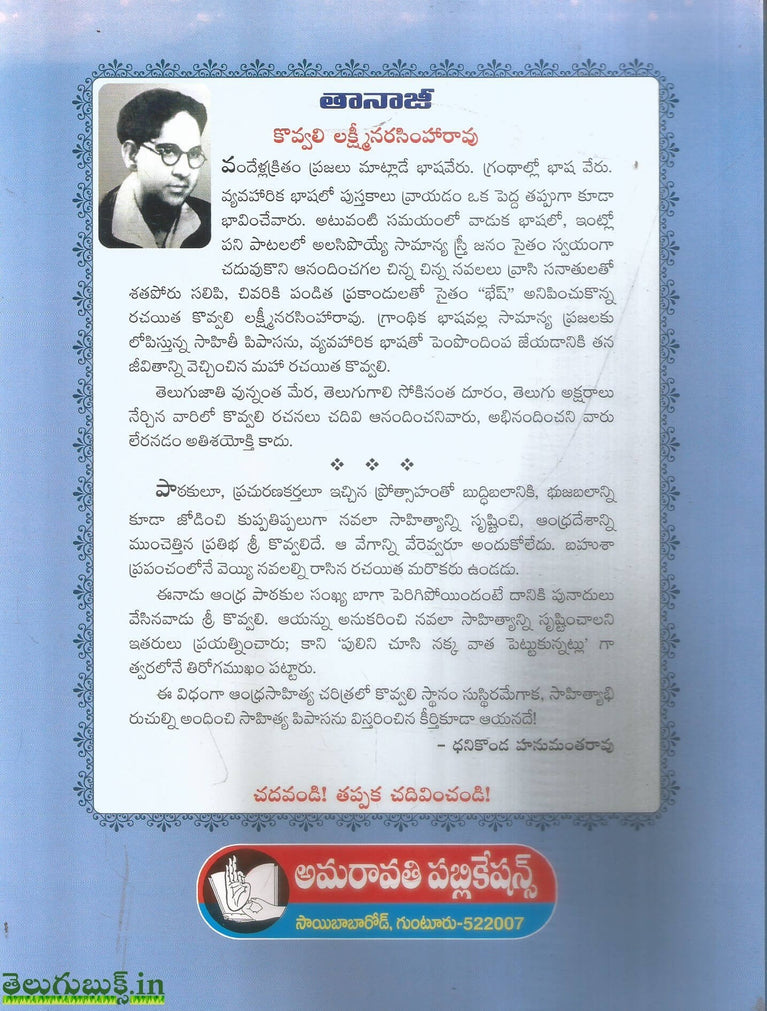 తానాజీ
కొవ్వలి లక్ష్మీనరసింహారావు
వందేళ్లక్రితం ప్రజలు మాట్లాడే భాషవేరు. గ్రంథాల్లో భాష వేరు.
వ్యవహారిక భాషలో పుస్తకాలు వ్రాయడం ఒక పెద్ద తప్పుగా కూడా
భావించేవారు. అటువంటి సమయంలో వాడుక భాషలో, ఇంట్లో
పని పాటలలో అలసిపొయ్యే సామాన్య స్త్రీ జనం సైతం స్వయంగా
చదువుకొని ఆనందించగల చిన్న చిన్న నవలలు వ్రాసి సనాతులతో
శతపోరు సలిపి, చివరికి పండిత ప్రకాండులతో సైతం "భేష్" అనిపించుకొన్న
రచయిత కొవ్వలి లక్ష్మీనరసింహారావు. గ్రాంథిక భాషవల్ల సామాన్య ప్రజలకు
లోపిస్తున్న సాహితీ పిపాసను, వ్యవహారిక భాషతో పెంపొందింప జేయడానికి తన
జీవితాన్ని వెచ్చించిన మహా రచయిత కొవ్వలి.
తెలుగుజాతి వున్నంత మేర, తెలుగుగాలి సోకినంత దూరం, తెలుగు అక్షరాలు
నేర్చిన వారిలో కొవ్వలి రచనలు చదివి ఆనందించనివారు, అభినందించని వారు
లేరనడం అతిశయోక్తి కాదు.
పాఠకులూ, ప్రచురణకర్తలూ ఇచ్చిన ప్రోత్సాహంతో బుద్ధిబలానికి, భుజబలాన్ని
కూడా జోడించి కుప్పతిప్పలుగా నవలా సాహిత్యాన్ని సృష్టించి, ఆంధ్రదేశాన్ని
ముంచెత్తిన ప్రతిభ శ్రీ కొవ్వలిదే. ఆ వేగాన్ని వేరెవ్వరూ అందుకోలేదు. బహుశా
ప్రపంచంలోనే వెయ్యి నవలల్ని రాసిన రచయిత మరొకరు ఉండడు.
ఈనాడు ఆంధ్ర పాఠకుల సంఖ్య బాగా పెరిగిపోయిందంటే దానికి పునాదులు
వేసినవాడు శ్రీ కొవ్వలి. ఆయన్ను అనుకరించి నవలా సాహిత్యాన్ని సృష్టించాలని
ఇతరులు ప్రయత్నించారు; కాని 'పులిని చూసి నక్క వాత పెట్టుకున్నట్లు' గా
త్వరలోనే తిరోగముఖం పట్టారు.
ఈ విధంగా ఆంధ్రసాహిత్య చరిత్రలో కొవ్వలి స్థానం సుస్థిరమేగాక, సాహిత్యాభి
రుచుల్ని అందించి సాహిత్య పిపాసను విస్తరించిన కీర్తికూడా ఆయనదే!
– ధనికొండ హనుమంతరావు
చదవండి! తప్పక చదివించండి!
అమరావతి పబ్లికేషన్స్
సాయిబాబారోడ్, గుంటూరు-522007
తెలుగుబుక్స్.in